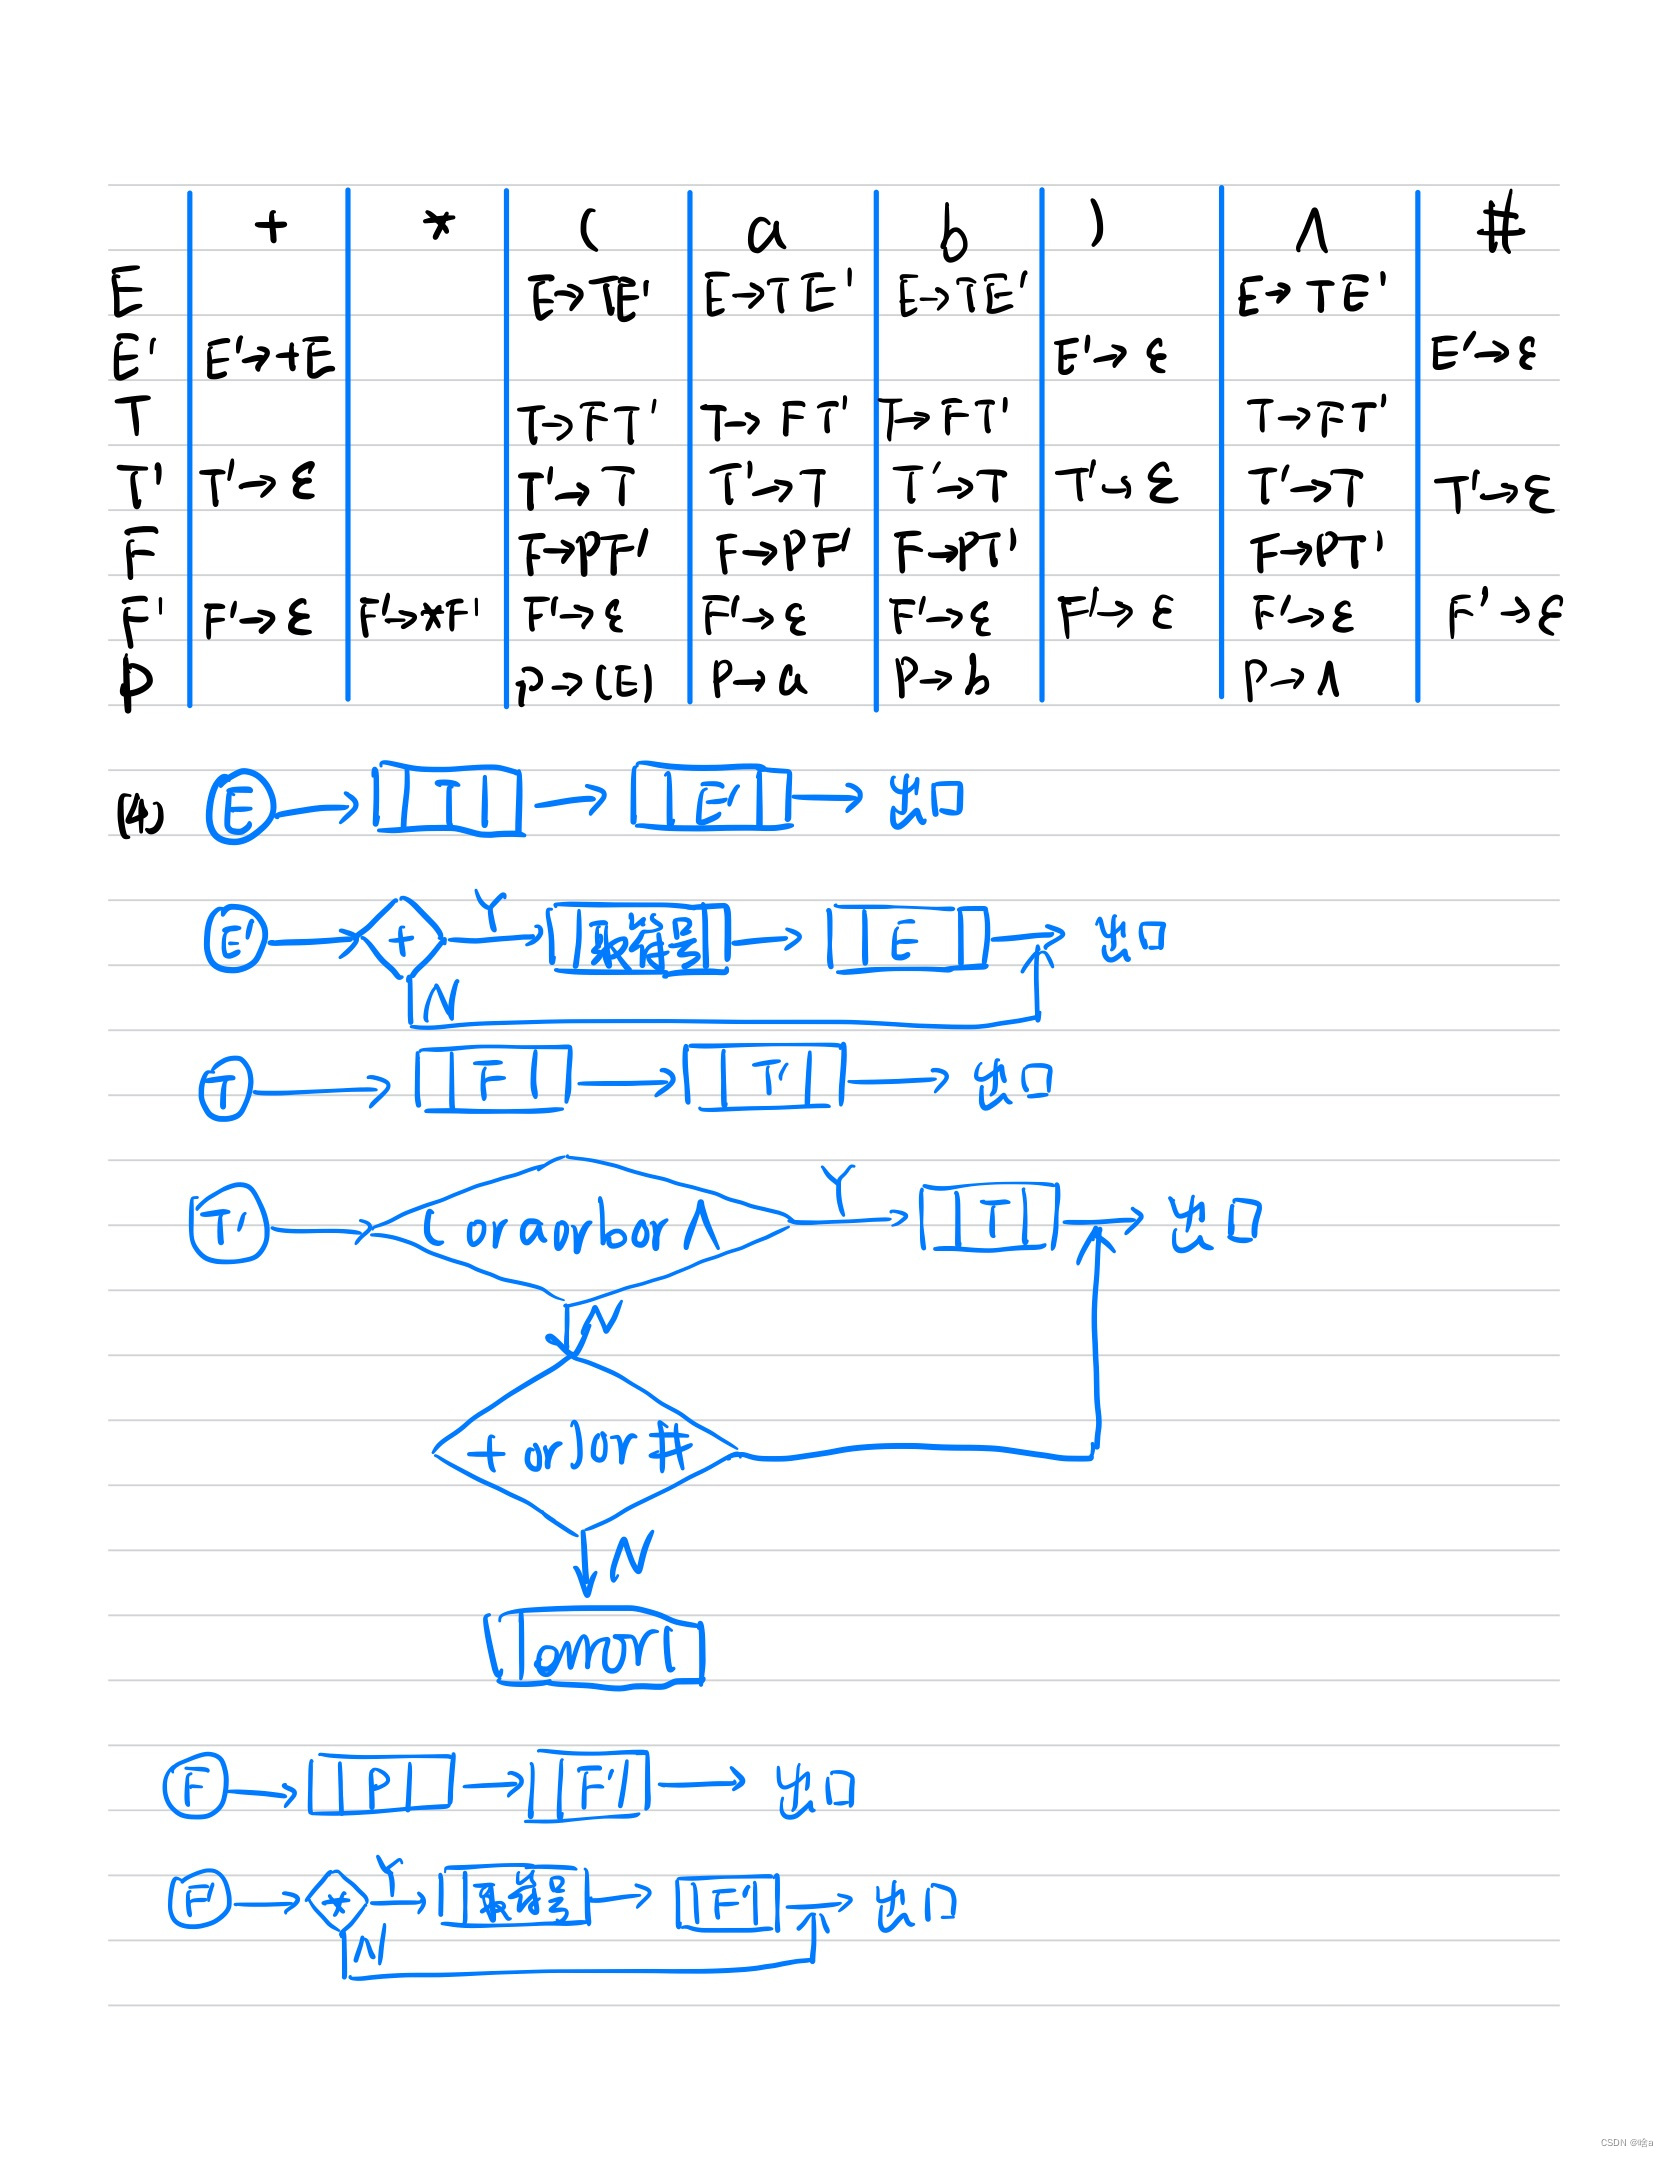 + * ( a b ) ∧ #
E E→TE' E→TE' E→TE' E→TE'
E' E'→+E E'→ε E'→ε
T T→FT' T→FT' T→FT' T→FT'
T' T'→ε T'→T T'→T T'→T T'→ε T'→T T'→ε
F F→PF' F→PF' F→PT' F→PT'
F' F'→ε F'→*F' F'→ε F'→ε F'→ε F'→ε F'→ε F'→ε
P P→(E) P→a P→b P→∧
(4) E → T → E' → 出口
E' → + Y 取符号 → E → 出口
N
T → F → T' → 出口
T' → ( or a or b or ∧ Y → T → 出口
N
+ or ) or #
N
error
F → P → F' → 出口
F' → * Y → 取符号 → F' → 出口
N
CSDN @啥a